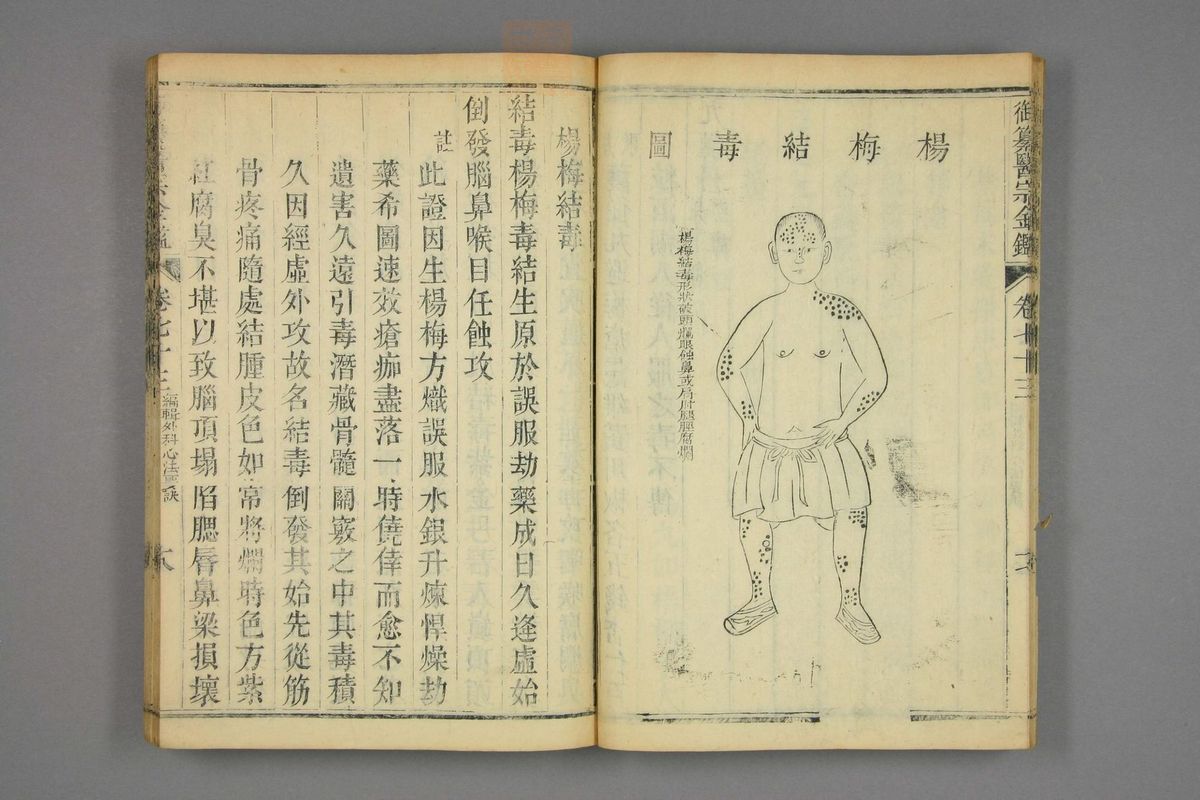 御纂醫宗金鑑
卷七十三
楊梅結毒圖
楊梅結毒形狀破頭爛眼蝕鼻或肩肘腿脛腐爛
楊梅結毒
結毒楊梅毒結生原於誤服劫藥成日久逢虛始
倒發腦鼻喉目任蝕攻
註此證因生楊梅方熾誤服水銀升煉悍燥劫
藥希圖速效瘡痂盡落一時僥倖而愈不知
遺害久遠引毒潛藏骨髓關竅之中其毒積
久因經虛外攻故名結毒倒發其始先從筋
骨疼痛隨處結腫皮色如常將爛時色方紫
紅腐臭不堪以致腦頂塌陷腮唇鼻梁損壞
卷七十三
編輯外科心法要訣